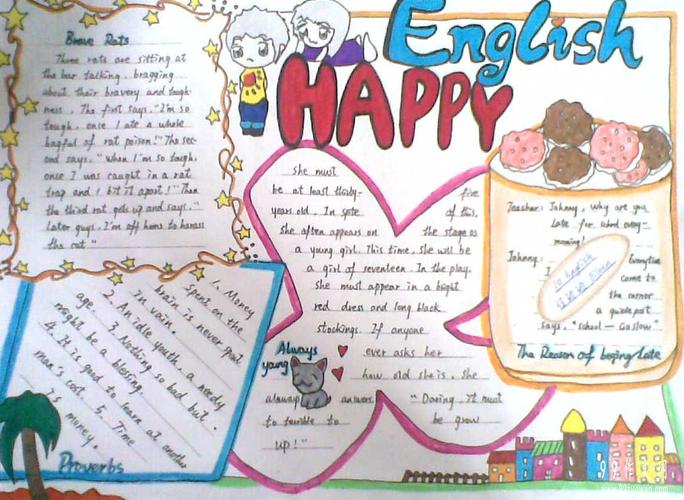 English
HAPPY
Brave Rats
Three rats are sitting at
the bar talking, bragging
about their bravery and tough-
ness. The first says. "I'm so
tough, once I ate a whole
bagful of rat poison!" The sec-
ond says. "When I'm so tough,
once I was caught in a rat
trap and I bit it apart!" Then
the third rat gets up and says."
Later guys. I'm off home to harass
the cat"
She must
be at least thirty- five
years old. In spite of this,
she often appears on the stage as
a young girl. This time, she will be
a girl of seventeen. In the play,
she must appear in a bright
red dress and long black
stockings. If anyone
ever asks her
how old she is, she
always answers. "Daring, it must
to terrible to be grow
up!"
Always
yang
Teacher: Johnny, Why are you
Late for school every-
morning!
Johnny: Everytime
I come to
the corner
a guide post
says, "School — Go slow"
The Reason of beging Late
1. Money
spent on the
brain is never
in vain.
2. An idle youth, a needy
age. 3. Nothing so bad but
might be a blessing.
4. It is good to learn at another
man's cost. 5. Time
Is money.
Proverbs